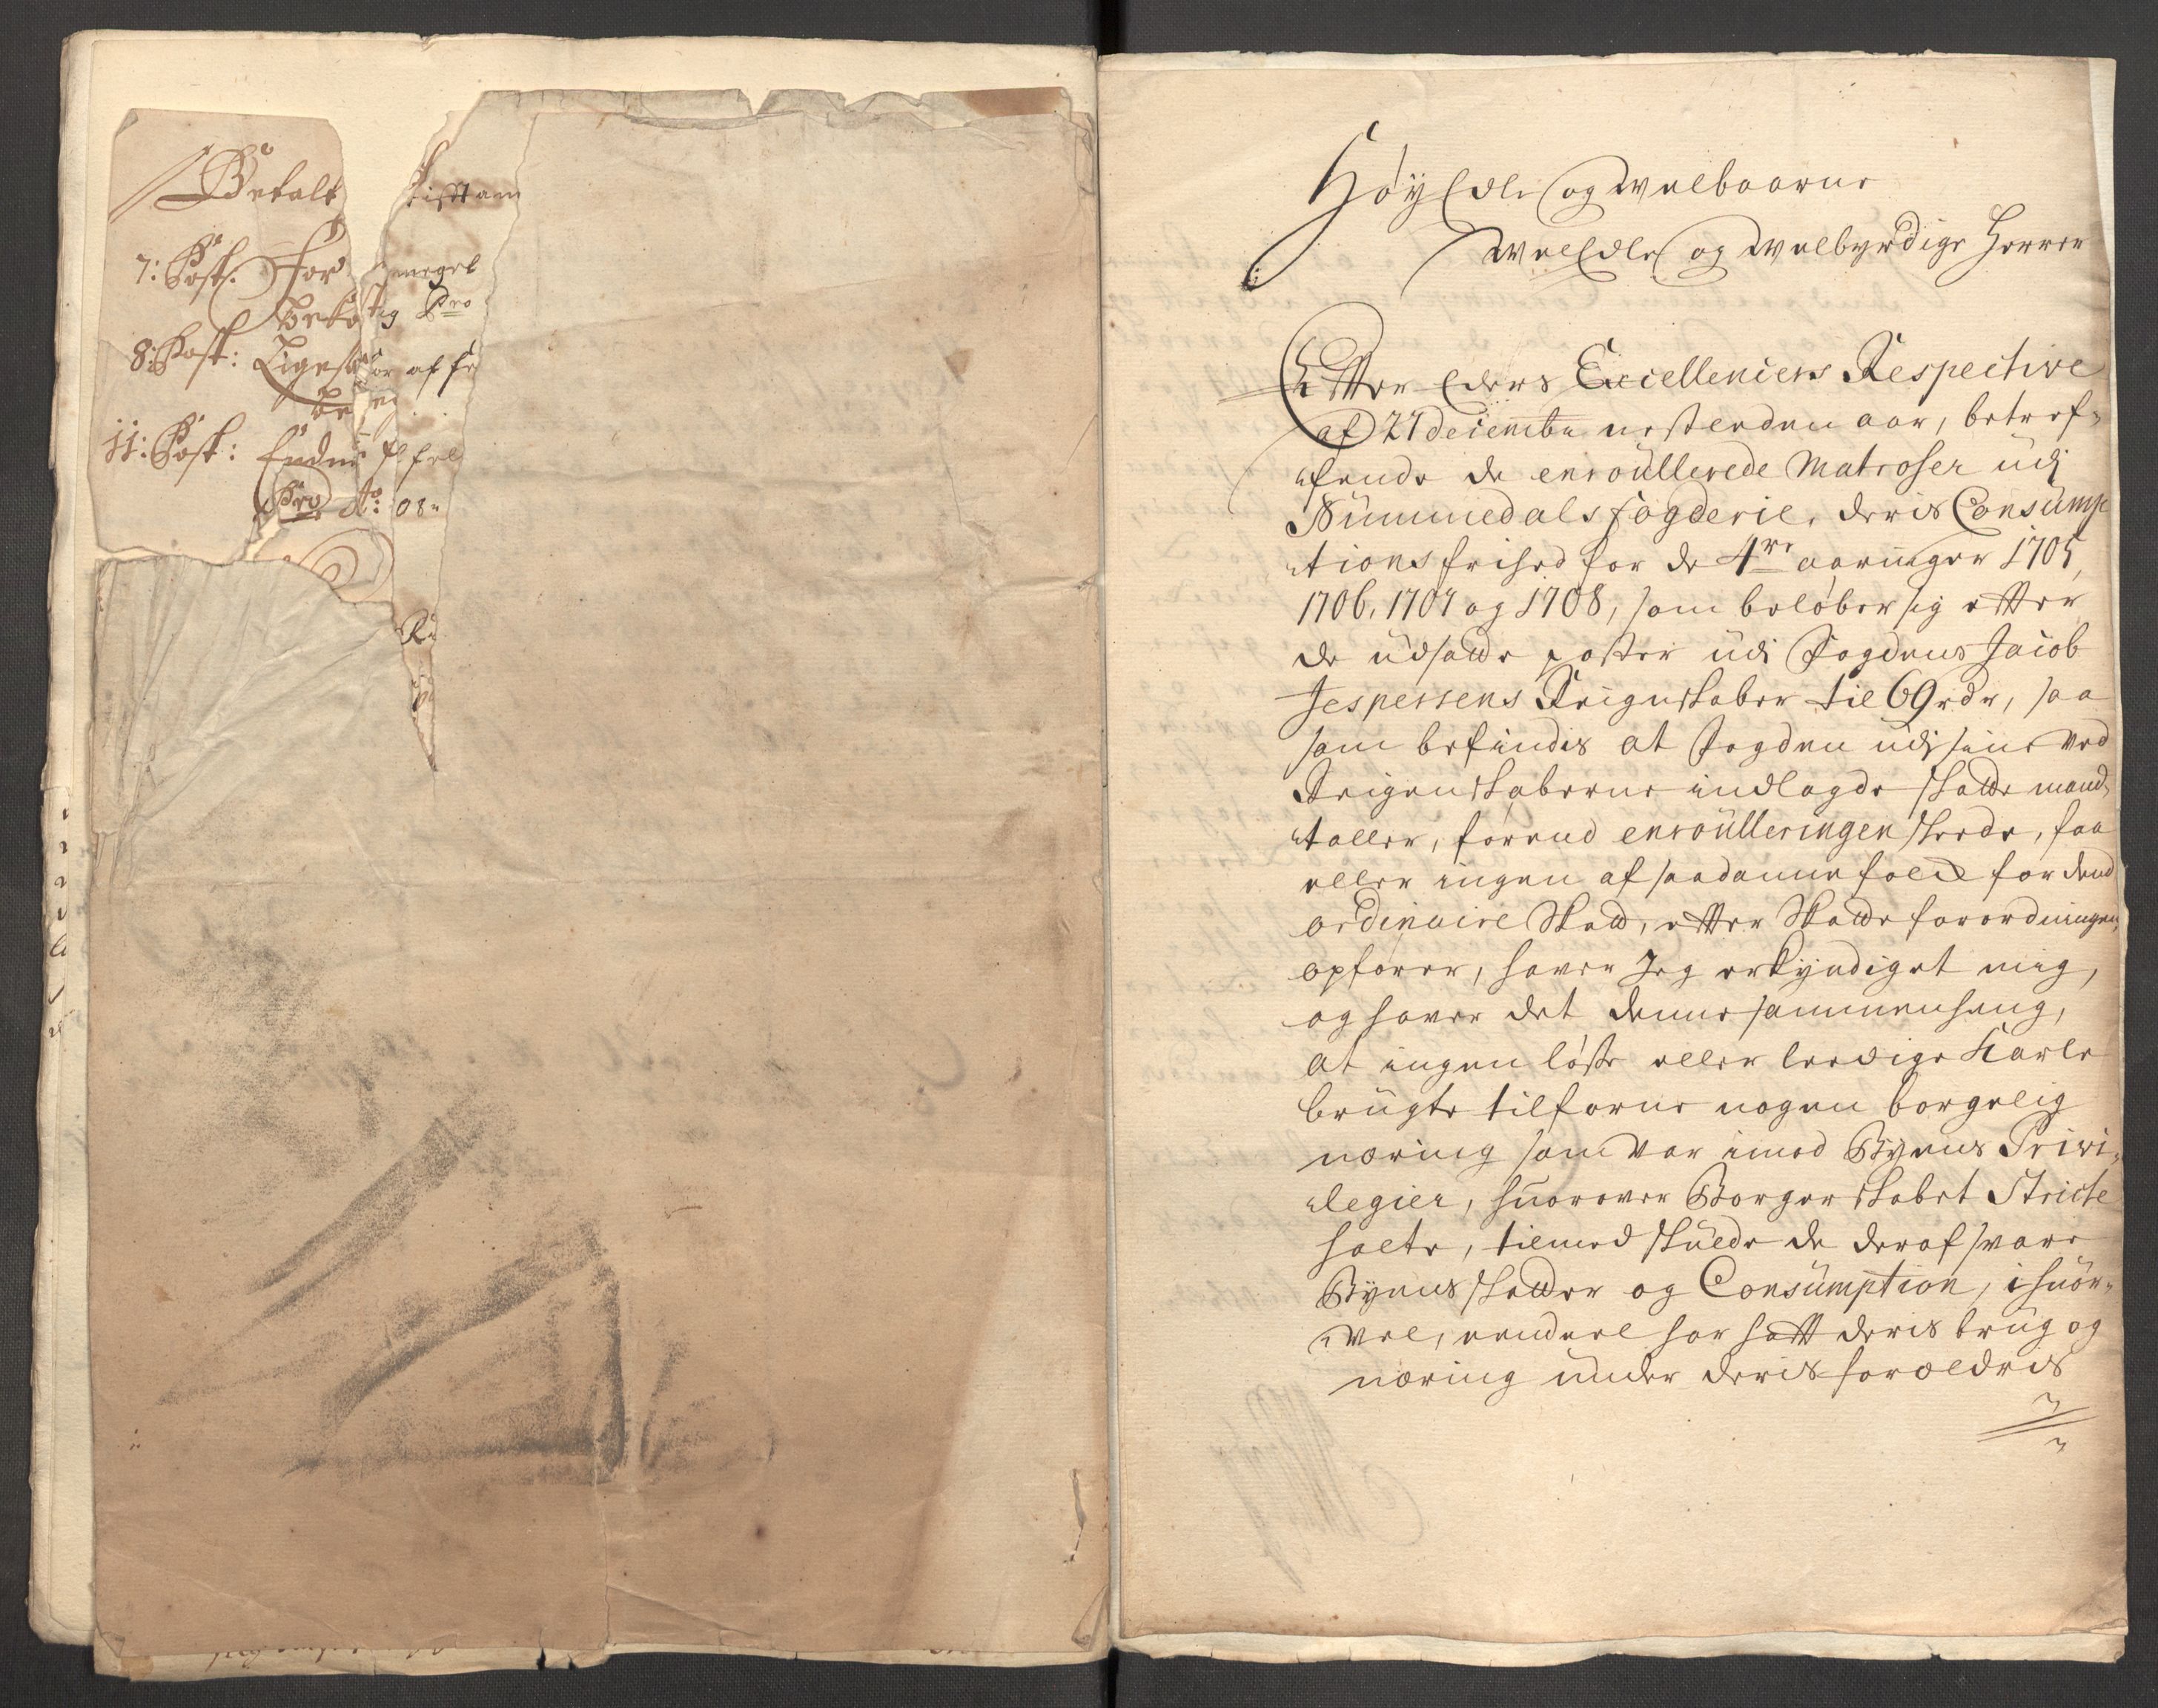 Betalt
7: Post. For
8: Post: Ligesaa for af
11: Post: Endnu
Pro Ao: 08
Høy Edle og Welbaarne
WelEdle og Welbyrdige Herrer
Efter Eders Excellenciers Respective
af 27 decembr nestenden aar, betref-
fende de enroullerede Matroser udj
Nummedals fogderie, deris Consump
tions frihed for de 4re aaringer 1705,
1706, 1707 og 1708, som beløber sig efter
de udsatte poster udi Fogdens Jacob
Jespersens Reignskaber til 69 rdr, saa
som befindis at Fogden udj sine ved
Reigenskaberne indlagde skatte mand
taller,førend enroulleringen skeede, faa
eller ingen af saadanne folck for dend
ordinaire Skatt, efter Skatte forordningen,
opfører, haver Jeg erkyndiget mig,
og haver det denne sammenheng,
at ingen løse eller leedige Karle
brugte tilforne nogen borgelig
næring som var imod Byens Privi-
legier, huorover Borgerskabet Stricte
holte, tilmed skulde de deraf svare
Byens skatter og Consumption, ihuor-
vel, eendeel har hatt deris brug og
næring under deris forældris